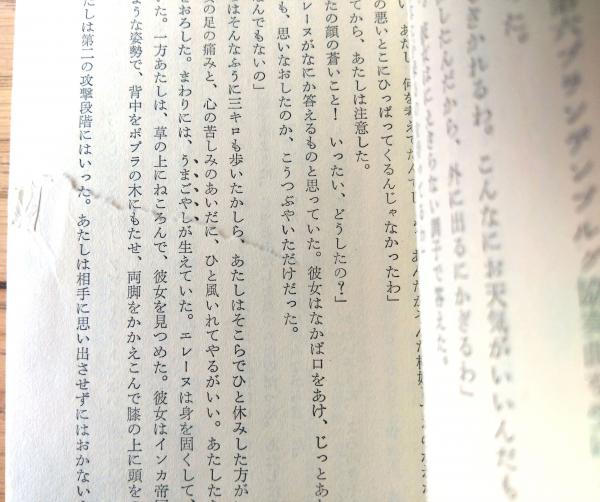 たブランデンブルグ
った。
ぎかれるわ。こんなにお天気がいいんだも
したんだから、外に出るにかぎるわ」
らない調子で答えた。
、あたし、何を考えてたんでし
の悪いとこにひっぱってくるんじゃなかったわ」
てから、あたしは注意した。
たの顔の蒼いこと！　いったい、どうしたの？」
レーヌがなにか答えるものと思っていた。彼女はなかば口をあけ、じっとあ
も、思いなおしたのか、こうつぶやいただけだった。
なんでもないの」
はそんなふうに三キロも歩いたかしら、あたしはそこらでひと休みした方が
の足の痛みと、心の苦しみのあいだに、ひと風いれてやるがいい。あたした
をおろした。まわりには、うまごやしが生えていた。エレーヌは身を固くして、
た。一方あたしは、草の上にねころんで、彼女を見つめた。彼女はインカ帝
ような姿勢で、背中をポプラの木にもたせ、両脚をかかえこんで膝の上に頭を
たしは第二の攻撃段階にはいった。あたしは相手に思い出させずにはおかない